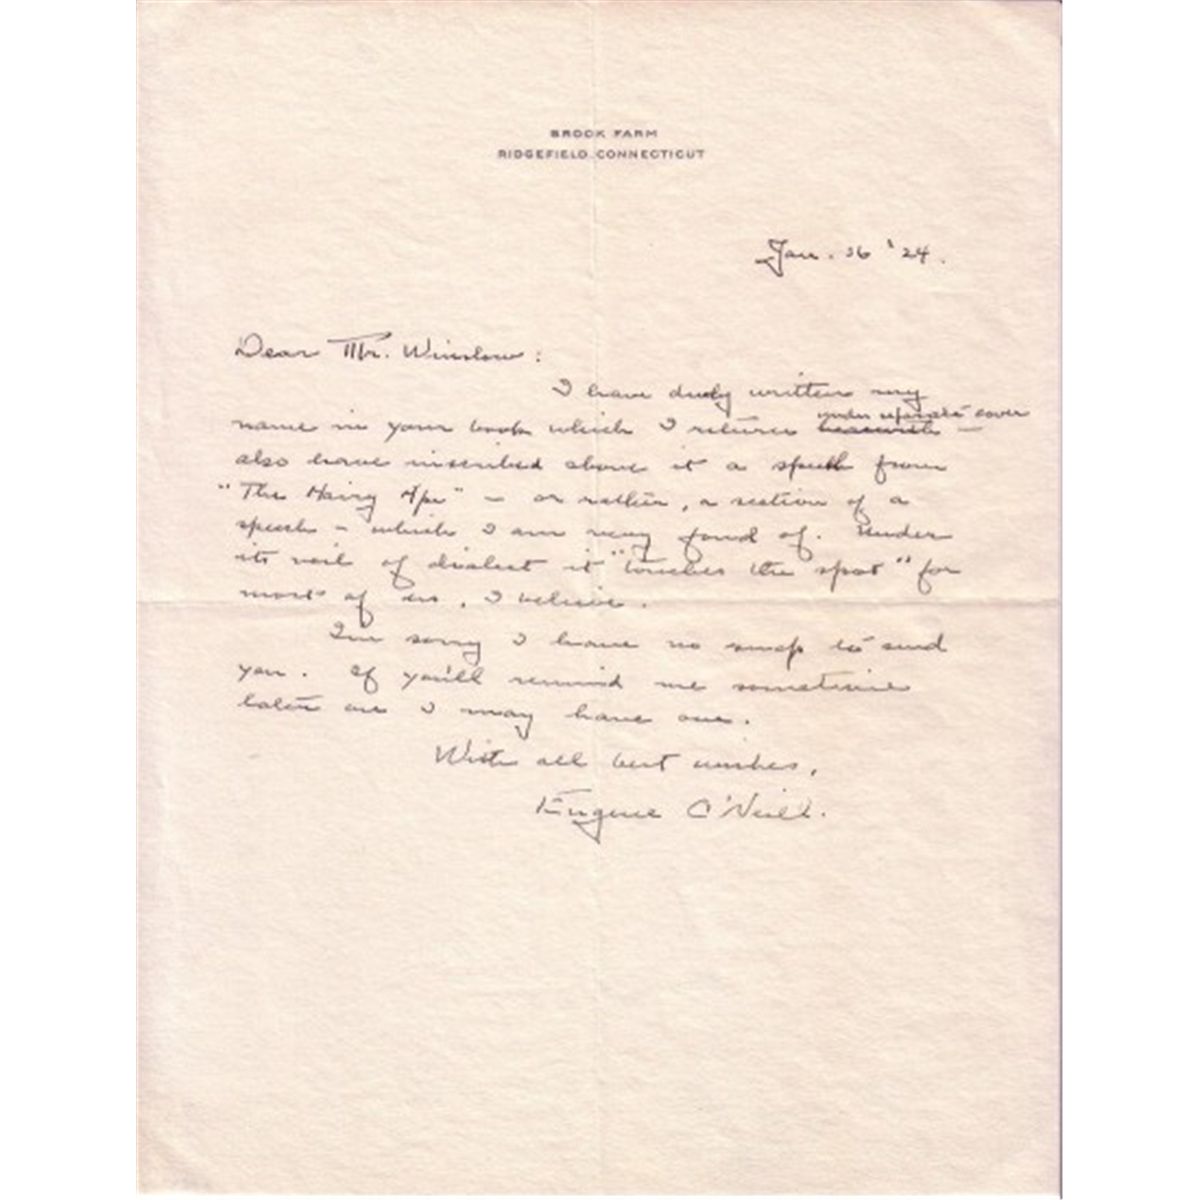 BROOK FARM
RIDGEFIELD, CONNECTICUT
Jan. 26 '24.
Dear Mr. Winslow:
I have duly written my
under separate cover
name in your book which I return herewith —
also have inscribed above it a speech from
"The Hairy Ape" — or rather, a section of a
speech — which I am very fond of. Under
its veil of dialect it "touches the spot" for
most of us, I believe.
I'm sorry I have no snap to send
you. If you'll remind me sometime
later on I may have one.
With all best wishes,
Eugene O'Neill.